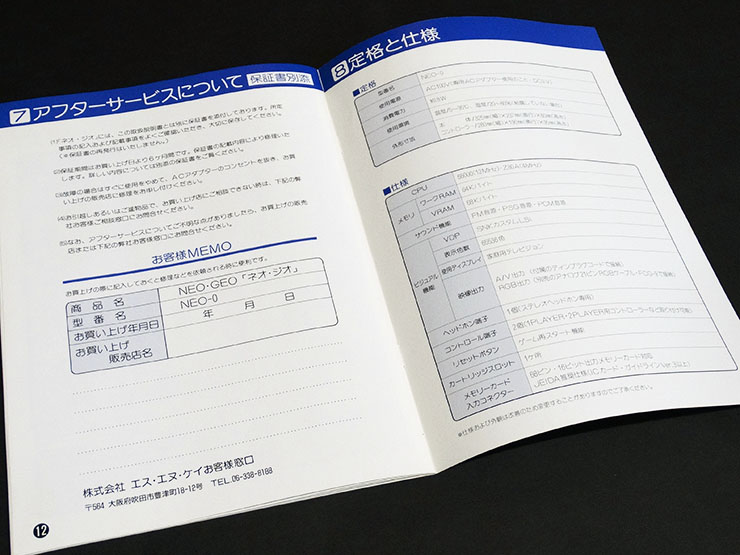 7 アフターサービスについて 保証書別添
(1)「ネオ・ジオ」には、この取扱説明書とは別に保証書を添付しております。所定
事項の記入および記載事項をよくご確認いただき、大切に保存してください。
(※保証書の再発行はいたしません。)
(2)保証期間はお買い上げ日より6ヶ月間です。保証書の記載内容により修理いた
します。詳しい内容については別添の保証書をご覧ください。
(3)故障の場合はすぐに使用をやめて、ACアダプターのコンセントを抜き、お買
い上げの販売店に修理をお申し付けください。
(4)お引越しあるいはご贈物品で、お買い上げ店にご相談できない時は、下記の弊
社お客様ご相談窓口にお問合せください。
(5)なお、アフターサービスについてご不明な点がありましたら、お買上げの販売
店または下記の弊社お客様窓口にお問合せください。
お客様MEMO
お買上げの際に記入しておくと修理などを依頼される時に便利です。
商品名 NEO・GEO「ネオ・ジオ」
型番名 NEO-0
お買い上げ年月日 年 月 日
お買い上げ
販売店名
株式会社 エス・エヌ・ケイお客様窓口
〒564 大阪府吹田市豊津町18-12号 TEL.06-338-8188
12
8 定格と仕様
■定格
型番名 NEO-0
使用電源
消費電力 約8W
使用範囲
外形寸法 本体
コントローラー
■仕様
CPU 68000(12MHz)・Z80A(4MHz)
メモリ ワークRAM 64Kバイト
VRAM 68Kバイト
サウンド機能 FM音源・PSG音源・PCM音源
ビジュアル機能 VDP SNKカスタムLSI
表示色数 65536色
使用ディスプレイ 家庭用テレビジョン
映像出力 A/V出力(付属のディンプラグコードで接続)
RGB出力(別売のアナログ21ピンRGBケーブル・FCG-9で接続)
ヘッドホン端子 1個(ステレオヘッドホン専用)
コントロール端子 2個(1PLAYER・2PLAYER用コントローラーなど取り付け可能)
リセットボタン ゲーム再スタート機能
カートリッジスロット 1ケ所
メモリーカード
入力コネクター 68ピン・16ビット出力メモリーカード対応
JEIDA準拠仕様(ICカード・ガイドラインver.3以上)
※仕様および外観は改善のため変更することがありますのでご了承ください。